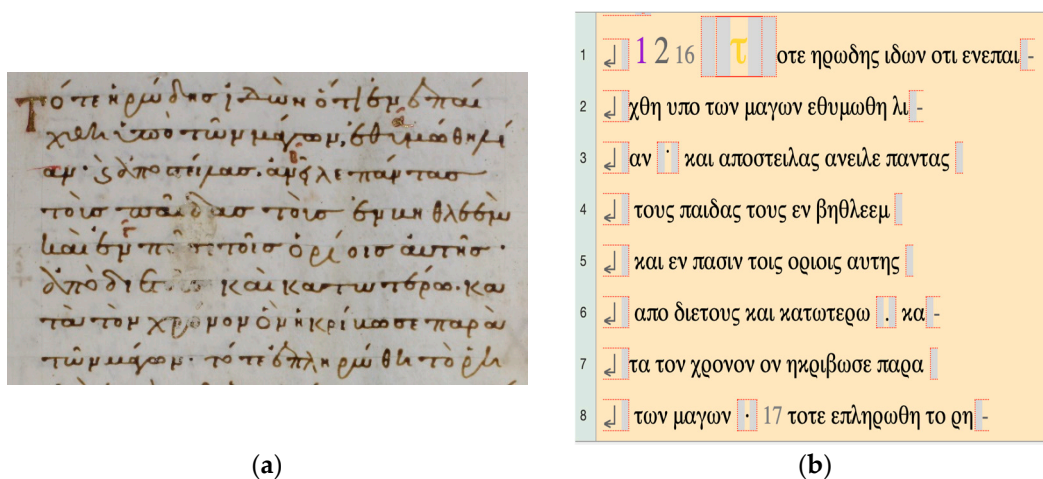 Τότε ἡρώδησ ἰδὼν ὅτι ἐνεπαί
χθη ὑπὸ τῶν μάγων, ἐθυμώθη λί
αν· ϗ ἀποστείλασ. ἀνεῖλε πάντασ
τοὺσ παῖδασ τοὺσ ἐν βηθλεὲμ
καὶ ἐν τοῖσ ὁρίοισ αὐτῆσ·
ἀπὸ καὶ κατωτέρω. κα
τὰ τὸν χρόνον ὃν ἠκρίβωσε παρὰ
τῶν μάγων· τότε ἐπληρώθη τὸ ῥη
(a)
1 ↲ 1 2 16 τ οτε ηρωδης ιδων οτι ενεπαι -
2 ↲ χθη υπο των μαγων εθυμωθη λι -
3 ↲ αν · και αποστειλας ανειλε παντας
4 ↲ τους παιδας τους εν βηθλεεμ
5 ↲ και εν πασιν τοις οριοις αυτης
6 ↲ απο διετους και κατωτερω . κα -
7 ↲ τα τον χρονον ον ηκριβωσε παρα
8 ↲ των μαγων · 17 τοτε επληρωθη το ρη -
(b)